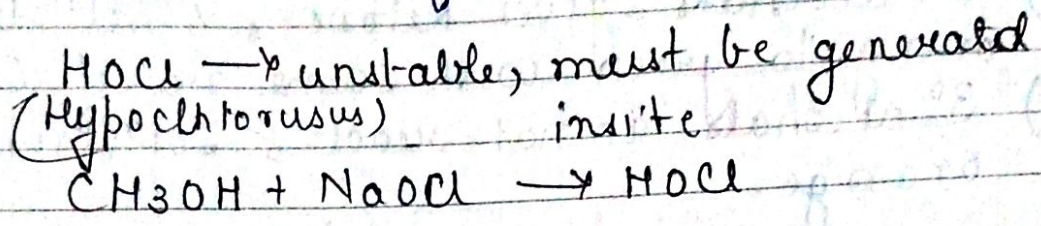 HOCl → unstable, must be generated
(Hypochlorusus) insite
CH3OH + NaOCl → HOCl